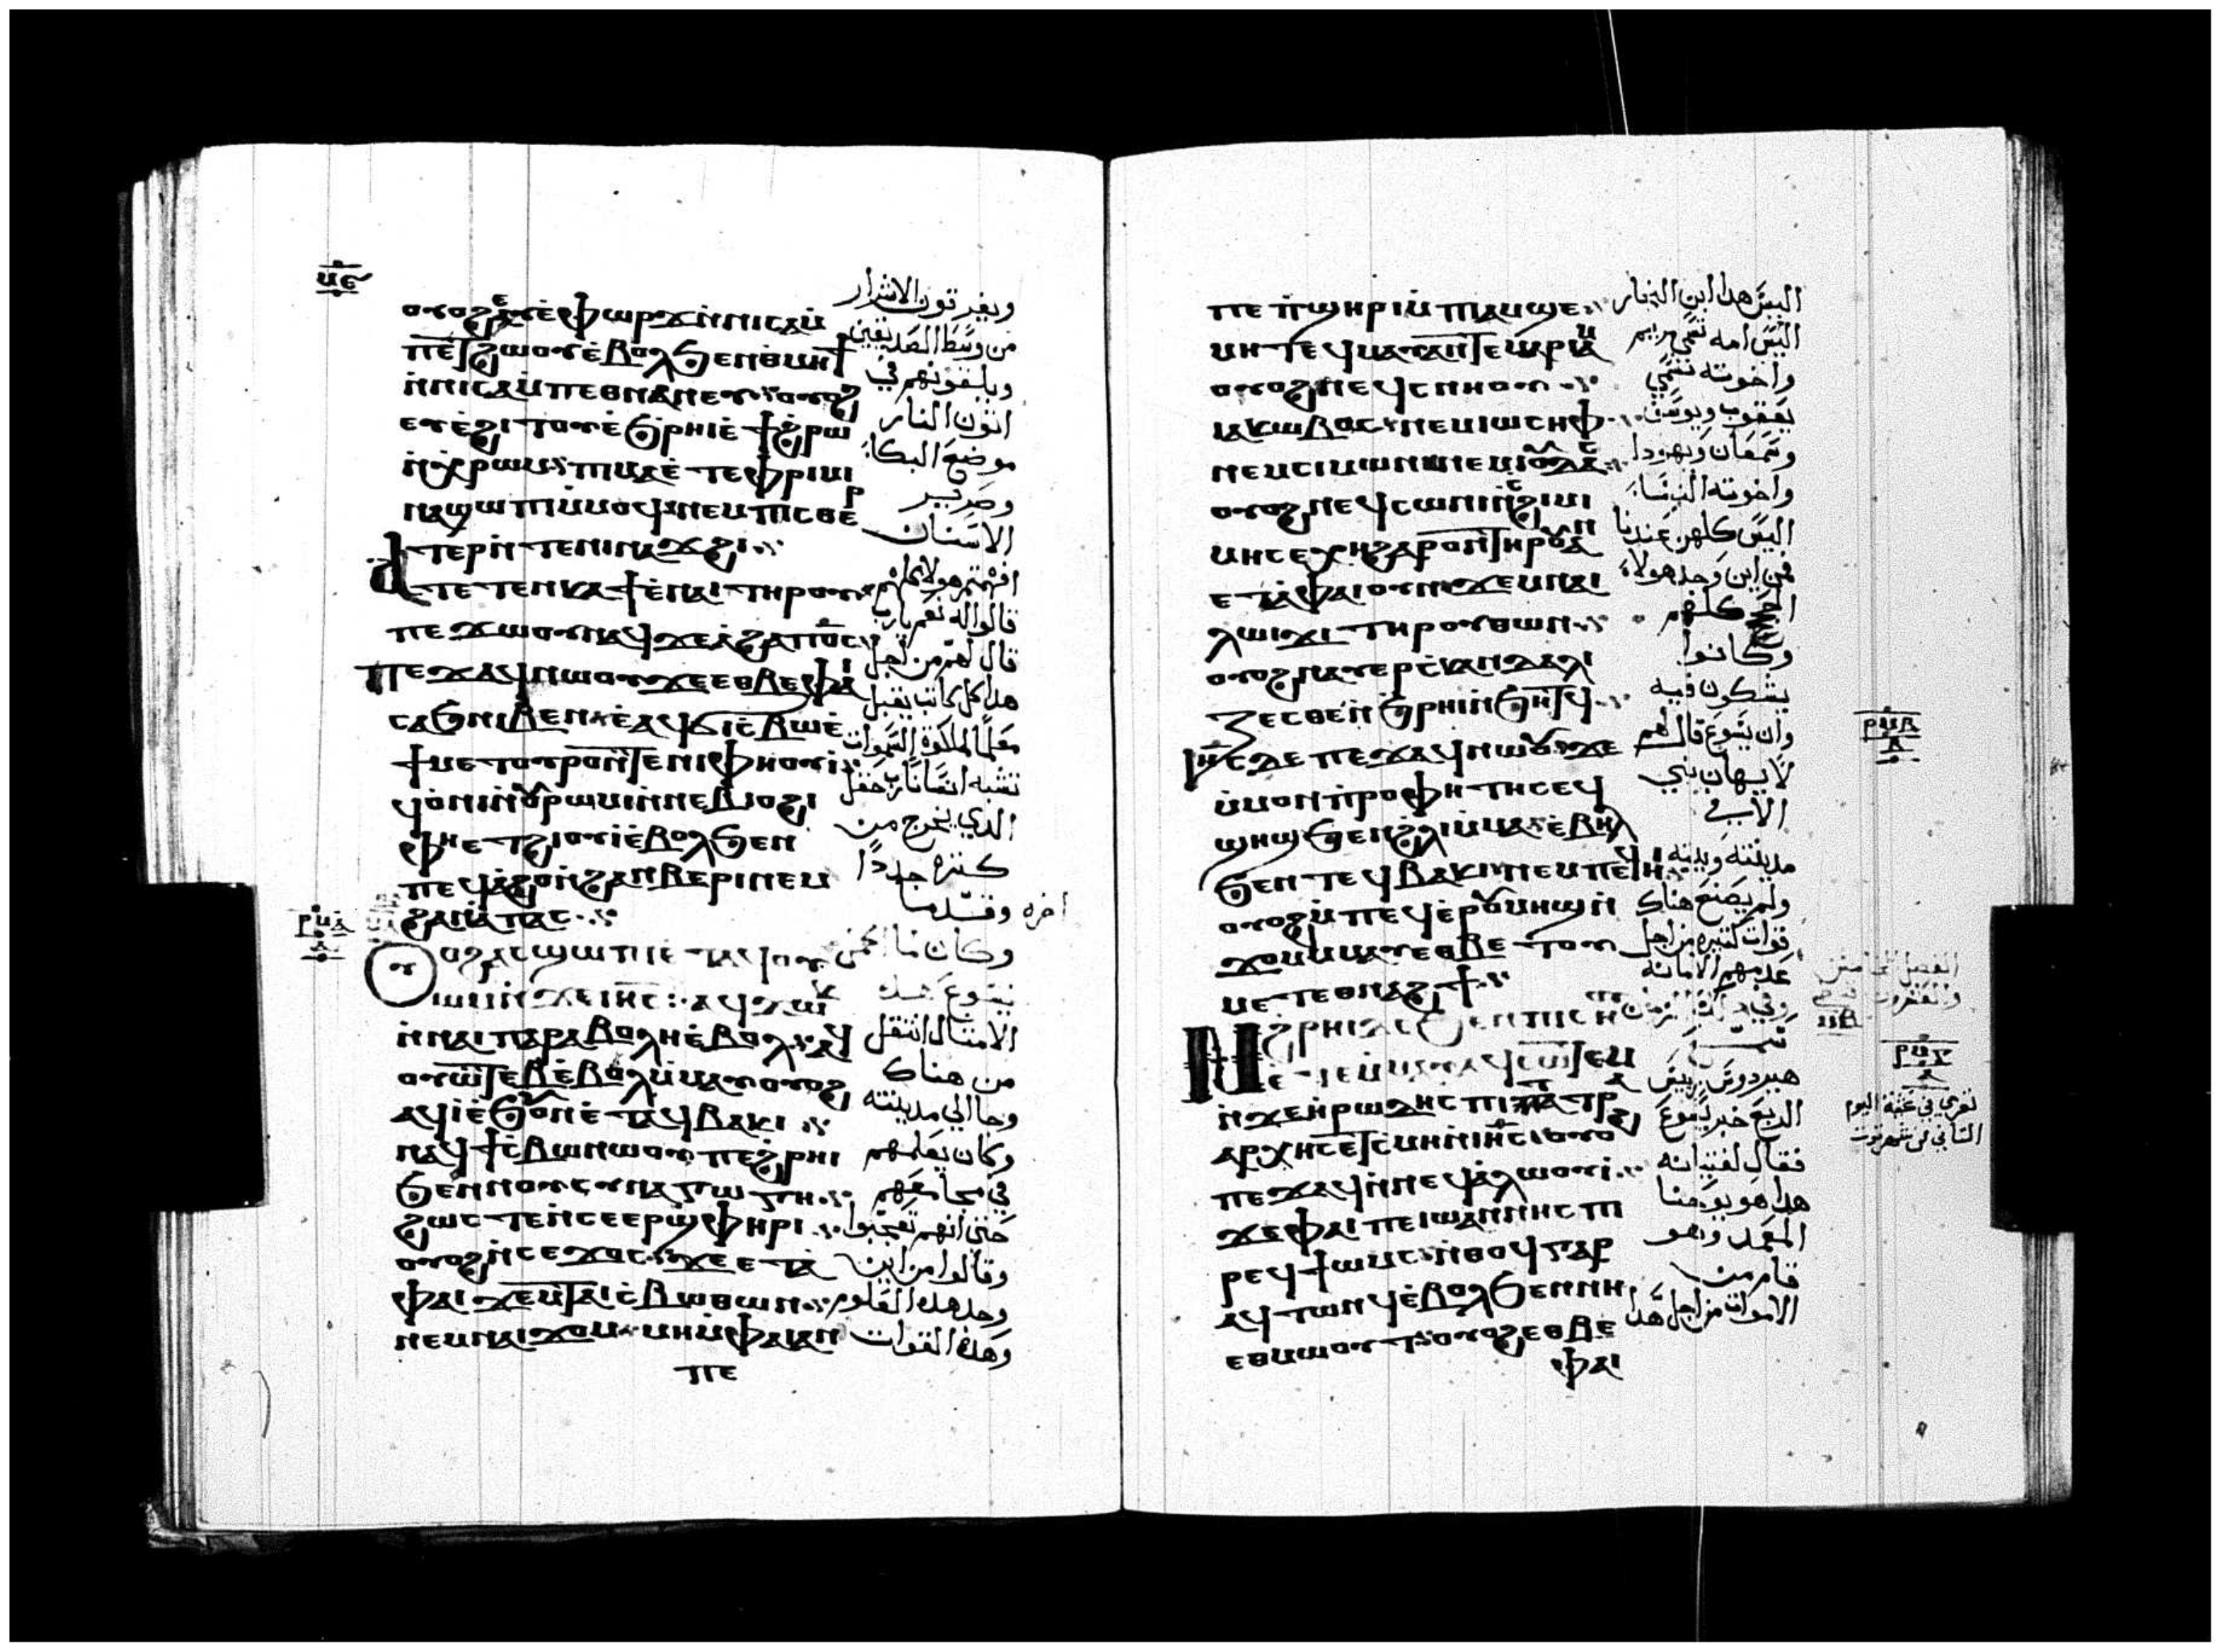 ⲙⲋ
ⲟⲩⲟϩ ⲉⲩⲉ̀ⲫⲱⲣϫ ⲛ̀ⲛⲓⲥⲁⲙ̀
ⲡⲉⲧϩⲱⲟⲩ ⲉ̀ⲃⲟⲗ ϧⲉⲛ ⲑⲙⲏϯ
ⲛ̀ⲛⲓⲥⲁⲙ̀ⲡⲉⲑⲛⲁⲛⲉⲩ ⲟⲩⲟϩ
ⲉⲩⲉ̀ϩⲓⲧⲟⲩ ⲉ̀ϧⲣⲏⲓ ⲉ̀ϯϩⲣⲱ
ⲛ̀ⲭⲣⲱⲙ ⲡⲓⲙⲁ ⲉ̀ⲧⲉ ⲫⲣⲓⲙⲓ
ⲛⲁϣⲱⲡⲓ ⲙ̀ⲙⲟϥ ⲛⲉⲙ ⲡⲓⲥⲑⲉⲣ
ⲧⲉⲣ ⲛ̀ⲧⲉ ⲛⲓⲛⲁϫϩⲓ
ⲁⲧⲉⲧⲉⲛⲕⲁϯ ⲉ̀ⲛⲁⲓ ⲧⲏⲣⲟⲩ
ⲡⲉϫⲱⲟⲩ ⲛⲁϥ ϫⲉ ⲁ̀ϩⲁ ⲡⲟ̅ⲥ̅
ⲡⲉϫⲁϥ ⲛⲱⲟⲩ ϫⲉ ⲉⲑⲃⲉ ⲫⲁⲓ
ⲥⲁϧ ⲛⲓⲃⲉⲛ ⲉ̀ⲁϥϭⲓ ⲉ̀ⲃⲱ ⲉ̀
ϯⲙⲉⲧⲟⲩⲣⲟ ⲛ̀ⲧⲉ ⲛⲓⲫⲏⲟⲩⲓ̀
ϥⲟ̀ⲛⲓ ⲛ̀ⲟⲩⲣⲱⲙⲓ ⲛ̀ⲛⲉⲃⲓⲟϩⲓ
ⲫⲏⲉⲧϩⲓⲟⲩⲓ̀ ⲉ̀ⲃⲟⲗ ϧⲉⲛ
ⲡⲉϥⲁ̀ϩⲟ ⲛ̀ϩⲁⲛⲃⲉⲣⲓ ⲛⲉⲙ
ϩⲁⲛⲁ̀ⲡⲁⲥ
ⲣⲙⲁ
ⲟⲩⲟϩ ⲁⲥϣⲱⲡⲓ ⲉ̀ⲧⲁϥⲟⲩ
ⲱ ⲛ̀ϫⲉ ⲓⲏ̅ⲥ̅ ⲁϥϫⲱⲕ
ⲛ̀ⲛⲁⲓⲡⲁⲣⲁⲃⲟⲗⲏ ⲉ̀ⲃⲟⲗ ⲁϥ
ⲟⲩⲱⲧⲉⲃ ⲉ̀ⲃⲟⲗ ⲙ̀ⲙⲁⲩ ⲟⲩⲟϩ
ⲁϥⲓ̀ ⲉ̀ϧⲟⲩⲛ ⲉ̀ⲧⲉϥⲃⲁⲕⲓ
ⲛⲁϥϯⲥ̀ⲃⲱ ⲛⲱⲟⲩ ⲡⲉ ϩ̀ⲣⲏⲓ
ϧⲉⲛ ⲛⲟⲩⲥⲩⲛⲁⲅⲱⲅⲏ
ϩⲱⲥⲧⲉ ⲛ̀ⲥⲉⲉⲣϣⲫⲏⲣⲓ
ⲟⲩⲟϩ ⲛ̀ⲥⲉϫⲟⲥ ϫⲉ ⲉⲧⲁ̀
ⲫⲁⲓ ϫⲉⲙ ⲧⲁⲓⲥ̀ⲃⲱ ⲑⲱⲛ
ⲛⲉⲙ ⲛⲁⲓϫⲟⲙ ⲙⲏ ⲙ̀ⲫⲁⲓ ⲁⲛ
ⲡⲉ
ويفرقون الاشرار
من وسط الصديقين
ويلقونهم في
اتون النار
موضع البكا
وصرير
الاسنان
افهمتم هولا كلهم
قالوا له نعم يارب
قال لهم من اجل
هذا كل كاتب يقبل
معلما لملكوة السموات
تشبه انسانا رب حقل
الذي يخرج من
كنزه جددا
وقدما اخره
وكان لما اكمل
يسوع هذه
الامثال انتقل
من هناك
وجا الي مدينته
وكان يعلمهم
في مجامعهم
حتى انهم تعجبوا
وقالوا من اين
وجد هذه العلوم
وهذه القوات
ⲡⲉ ⲡ̀ϣⲏⲣⲓ ⲙ̀ⲡⲓⲁⲙϣⲉ
ⲙⲏ ⲧⲉϥⲙⲁⲩ ⲁⲛ ⲧⲉ ⲙⲁⲣⲓⲁⲙ
ⲟⲩⲟϩ ⲛⲉϥⲥⲛⲏⲟⲩ
ⲓⲁⲕⲱⲃⲟⲥ ⲛⲉⲙ ⲓⲱⲥⲏⲫ
ⲛⲉⲙ ⲥⲓⲙⲱⲛ ⲛⲉⲙ ⲓⲟⲩⲇⲁⲥ
ⲟⲩⲟϩ ⲛⲉϥⲥⲱⲛⲓ ⲛ̀ⲥϩⲓⲙⲓ
ⲙⲏ ⲥⲉⲭⲏ ϩⲁⲣⲟⲛ ⲧⲏⲣⲟⲩ ⲁⲛ
ⲉⲧⲁ̀ ⲫⲁⲓ ⲟⲩⲛ ϫⲉⲙ ⲛⲁⲓ
ⲗⲱⲓϫⲓ ⲧⲏⲣⲟⲩ ⲑⲱⲛ
ⲟⲩⲟϩ ⲛⲁⲩⲉⲣⲥ̀ⲕⲁⲛⲇⲁⲗⲓ
ⲍⲉⲥⲑⲉ ⲛ̀ϧⲣⲏⲓ ⲛ̀ϧⲏⲧϥ
ⲓⲏ̅ⲥ̅ ⲇⲉ ⲡⲉϫⲁϥ ⲛⲱⲟⲩ ϫⲉ
ⲙ̀ⲙⲟⲛ ⲡ̀ⲣⲟⲫⲏⲧⲏⲥ ⲉϥ
ϣⲏϣ ϧⲉⲛ ϩ̀ⲗⲓ ⲙ̀ⲙⲁ ⲉ̀ⲃⲏⲗ
ϧⲉⲛ ⲧⲉϥⲃⲁⲕⲓ ⲛⲉⲙ ⲡⲉϥⲏⲓ
ⲟⲩⲟϩ ⲙ̀ⲡⲉϥⲉⲣ ⲟⲩⲙⲏϣ ⲛ̀
ϫⲟⲙ ⲙ̀ⲙⲁⲩ ⲉⲑⲃⲉ ⲧⲟⲩ
ⲙⲉⲧⲁⲑⲛⲁϩϯ
ⲛϩⲣⲏⲓ ⲇⲉ ϧⲉⲛ ⲡⲓⲥⲏⲟⲩ
ⲉ̀ⲧⲉⲙ̀ⲙⲁⲩ ⲁϥⲥⲱⲧⲉⲙ
ⲛ̀ϫⲉ ⲏ̀ⲣⲱⲇⲏⲥ ⲡⲓⲧⲉⲧⲣⲁ
ⲁⲣⲭⲏⲥ ⲉ̀ⲧⲥ̀ⲙⲏ ⲛ̀ⲓⲏ̅ⲥ̅ ⲟⲩⲟϩ
ⲡⲉϫⲁϥ ⲛ̀ⲛⲉϥⲁ̀ⲗⲱⲟⲩⲓ̀
ϫⲉ ⲫⲁⲓ ⲡⲉ ⲓⲱⲁⲛⲛⲏⲥ ⲡⲓ
ⲣⲉϥϯⲱⲙⲥ ⲛ̀ⲑⲟϥ ⲅⲁⲣ
ⲁϥⲧⲱⲛϥ ⲉ̀ⲃⲟⲗ ϧⲉⲛ ⲛⲏ
ⲉⲑⲙⲱⲟⲩⲧ ⲟⲩⲟϩ ⲉⲑⲃⲉ
ⲫⲁⲓ
اليس هذا ابن النجار
اليس امه تسمى مريم
واخوته تسمي
يعقوب ويوسف
وسمعان ويهودا
واخوته النسا
اليس كلهن عندنا
فمن اين وجد هولاء
الحجج كلهم
وكانوا
يشكون فيه
وان يسوع قال لهم
لا يهان نبي
الا في
مدينته وبيته
ولم يصنع هناك
قوات كثيره من اجل
عدمهم الامانه
وفي ذلك الزمان
سمع
هيرودس رييس
الربع خبر يسوع
فقال لفتيانه
هذا هو يوحنا
المعمد وهو
قام من
الاموات من اجل هذا
ⲣⲙⲃ
ⲣⲙⲅ
تقري في عشية اليوم
الثاني من شهر توت